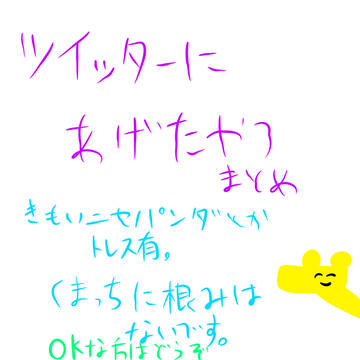 ツイッターに
あげたやつ
まとめ
きもいニセパンダとか
トレス有。
くまっちに根みは
ないです。
OKな方はどうぞ